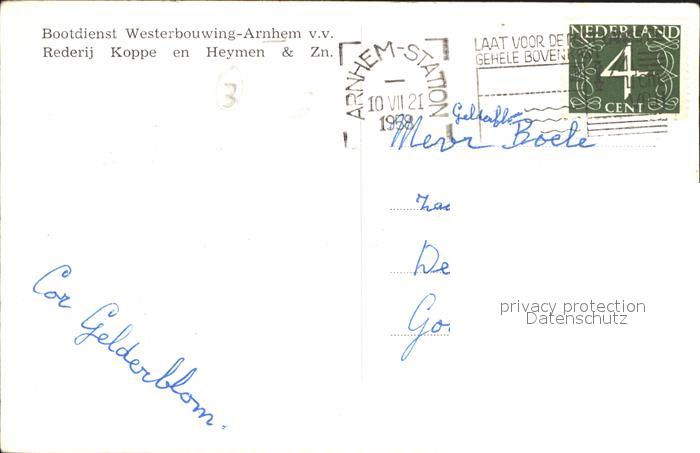 Bootdienst Westerbouwing-Arnhem v.v.
Rederij Koppe en Heymen & Zn.
3
ARNHEM-STATION
10 VII 21
1958
LAAT VOOR DE
GEHELE BOVEN
NEDERLAND
4
CENT
Mevr Boele
De
Go
privacy protection
Datenschutz
Cor Gelderblom.